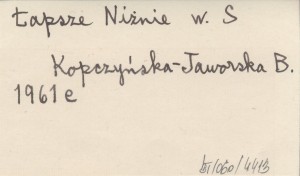 Łapsze Niżnie w. S
Kopczyńska-Jaworska B.
1961 e
III/060/4413